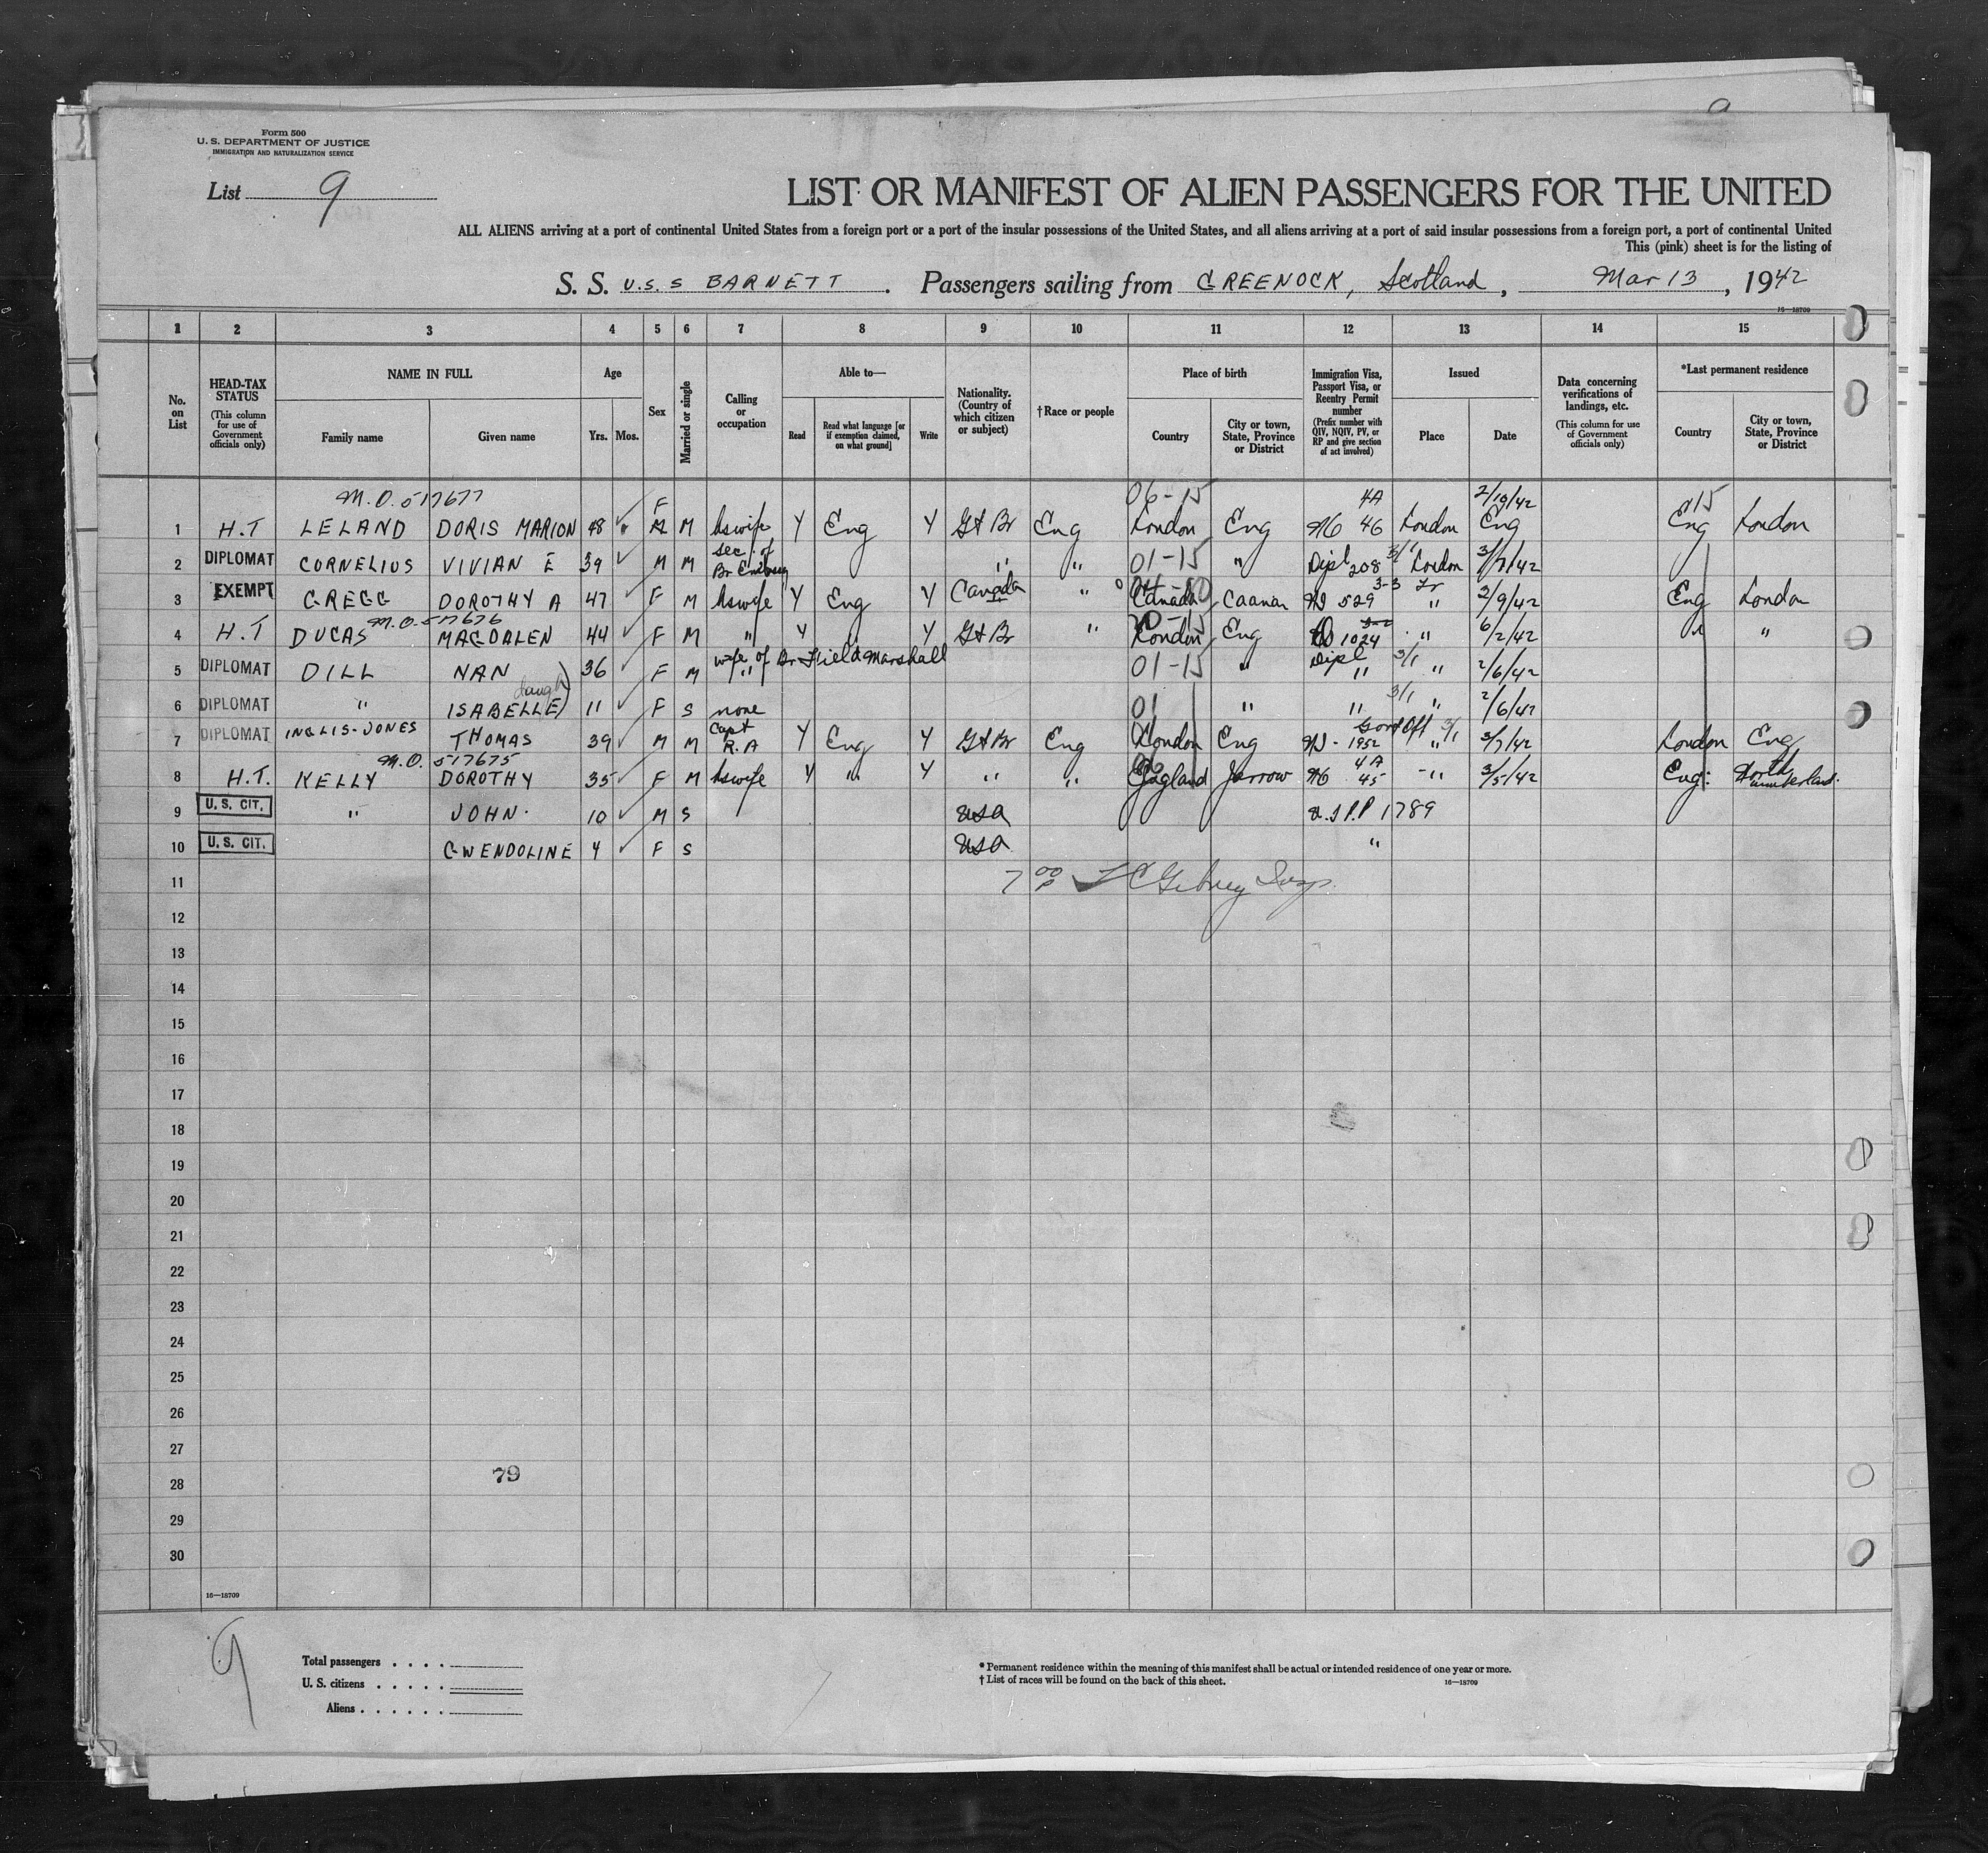 9
Form 500
U. S. DEPARTMENT OF JUSTICE
IMMIGRATION AND NATURALIZATION SERVICE
List 9
LIST OR MANIFEST OF ALIEN PASSENGERS FOR THE UNITED
ALL ALIENS arriving at a port of continental United States from a foreign port or a port of the insular possessions of the United States, and all aliens arriving at a port of said insular possessions from a foreign port, a port of continental United
This (pink) sheet is for the listing of
S. S. U.S.S BARNETT . Passengers sailing from GREENOCK, Scotland, Mar 13, 1942
16—18709
1 2 3 4 5 6 7 8 9 10 11 12 13 14 15
No. on List
HEAD-TAX STATUS (This column for use of Government officials only)
NAME IN FULL
Family name Given name
Age
Yrs. Mos.
Sex
Married or single
Calling or occupation
Able to—
Read Read what language [or if exemption claimed, on what ground] Write
Nationality. (Country of which citizen or subject)
†Race or people
Place of birth
Country City or town, State, Province or District
Immigration Visa, Passport Visa, or Reentry Permit number (Prefix number with QIV, NQIV, PV, or RP and give section of act involved)
Issued
Place Date
Data concerning verifications of landings, etc. (This column for use of Government officials only)
*Last permanent residence
Country City or town, State, Province or District
M.O. 517677 F 06-15 4A 2/19/42 15
1 H.T LELAND DORIS MARION 48 M hswife Y Eng Y Gt Br Eng London Eng 46 London Eng Eng London
2 DIPLOMAT CORNELIUS VIVIAN E 39 M M Sec. of Br Embassy " " 01-15 " Dipl 208 3/1 London 3/7/42
3 EXEMPT GREGG DOROTHY A 47 F M hswife Y Eng Y Canada " Canada Caanan 529 3-3 " 2/9/42 Eng London
M.O. 517676
4 H.T DUCAS MAGDALEN 44 F M " Y Y Gt Br " London Eng 1024 " 6/2/42 " "
5 DIPLOMAT DILL NAN 36 F M wife of Br Field Marshall 01-15 " Dipl " 3/1 " 2/6/42
6 DIPLOMAT " ISABELLE daugh 11 F S none 01 " " 3/1 " 2/6/42
7 DIPLOMAT INGLIS-JONES THOMAS 39 M M Capt R.A Y Eng Y Gt Br Eng London Eng 1952 Govt Off 3/1 " 3/7/42 London Eng
M.O. 517675
8 H.T. KELLY DOROTHY 35 F M hswife Y " Y " " England Jarrow 4A 45 " 3/5/42 Eng: Northumberland.
9 U. S. CIT. " JOHN 10 M S USA U.S P.P 1789
10 U. S. CIT. GWENDOLINE 4 F S USA "
11
12
13
14
15
16
17
18
19
20
21
22
23
24
25
26
27
28 79
29
30
16—18709
9
Total passengers . . . .
U. S. citizens . . . . .
Aliens . . . . . .
* Permanent residence within the meaning of this manifest shall be actual or intended residence of one year or more.
† List of races will be found on the back of this sheet.
16—18709